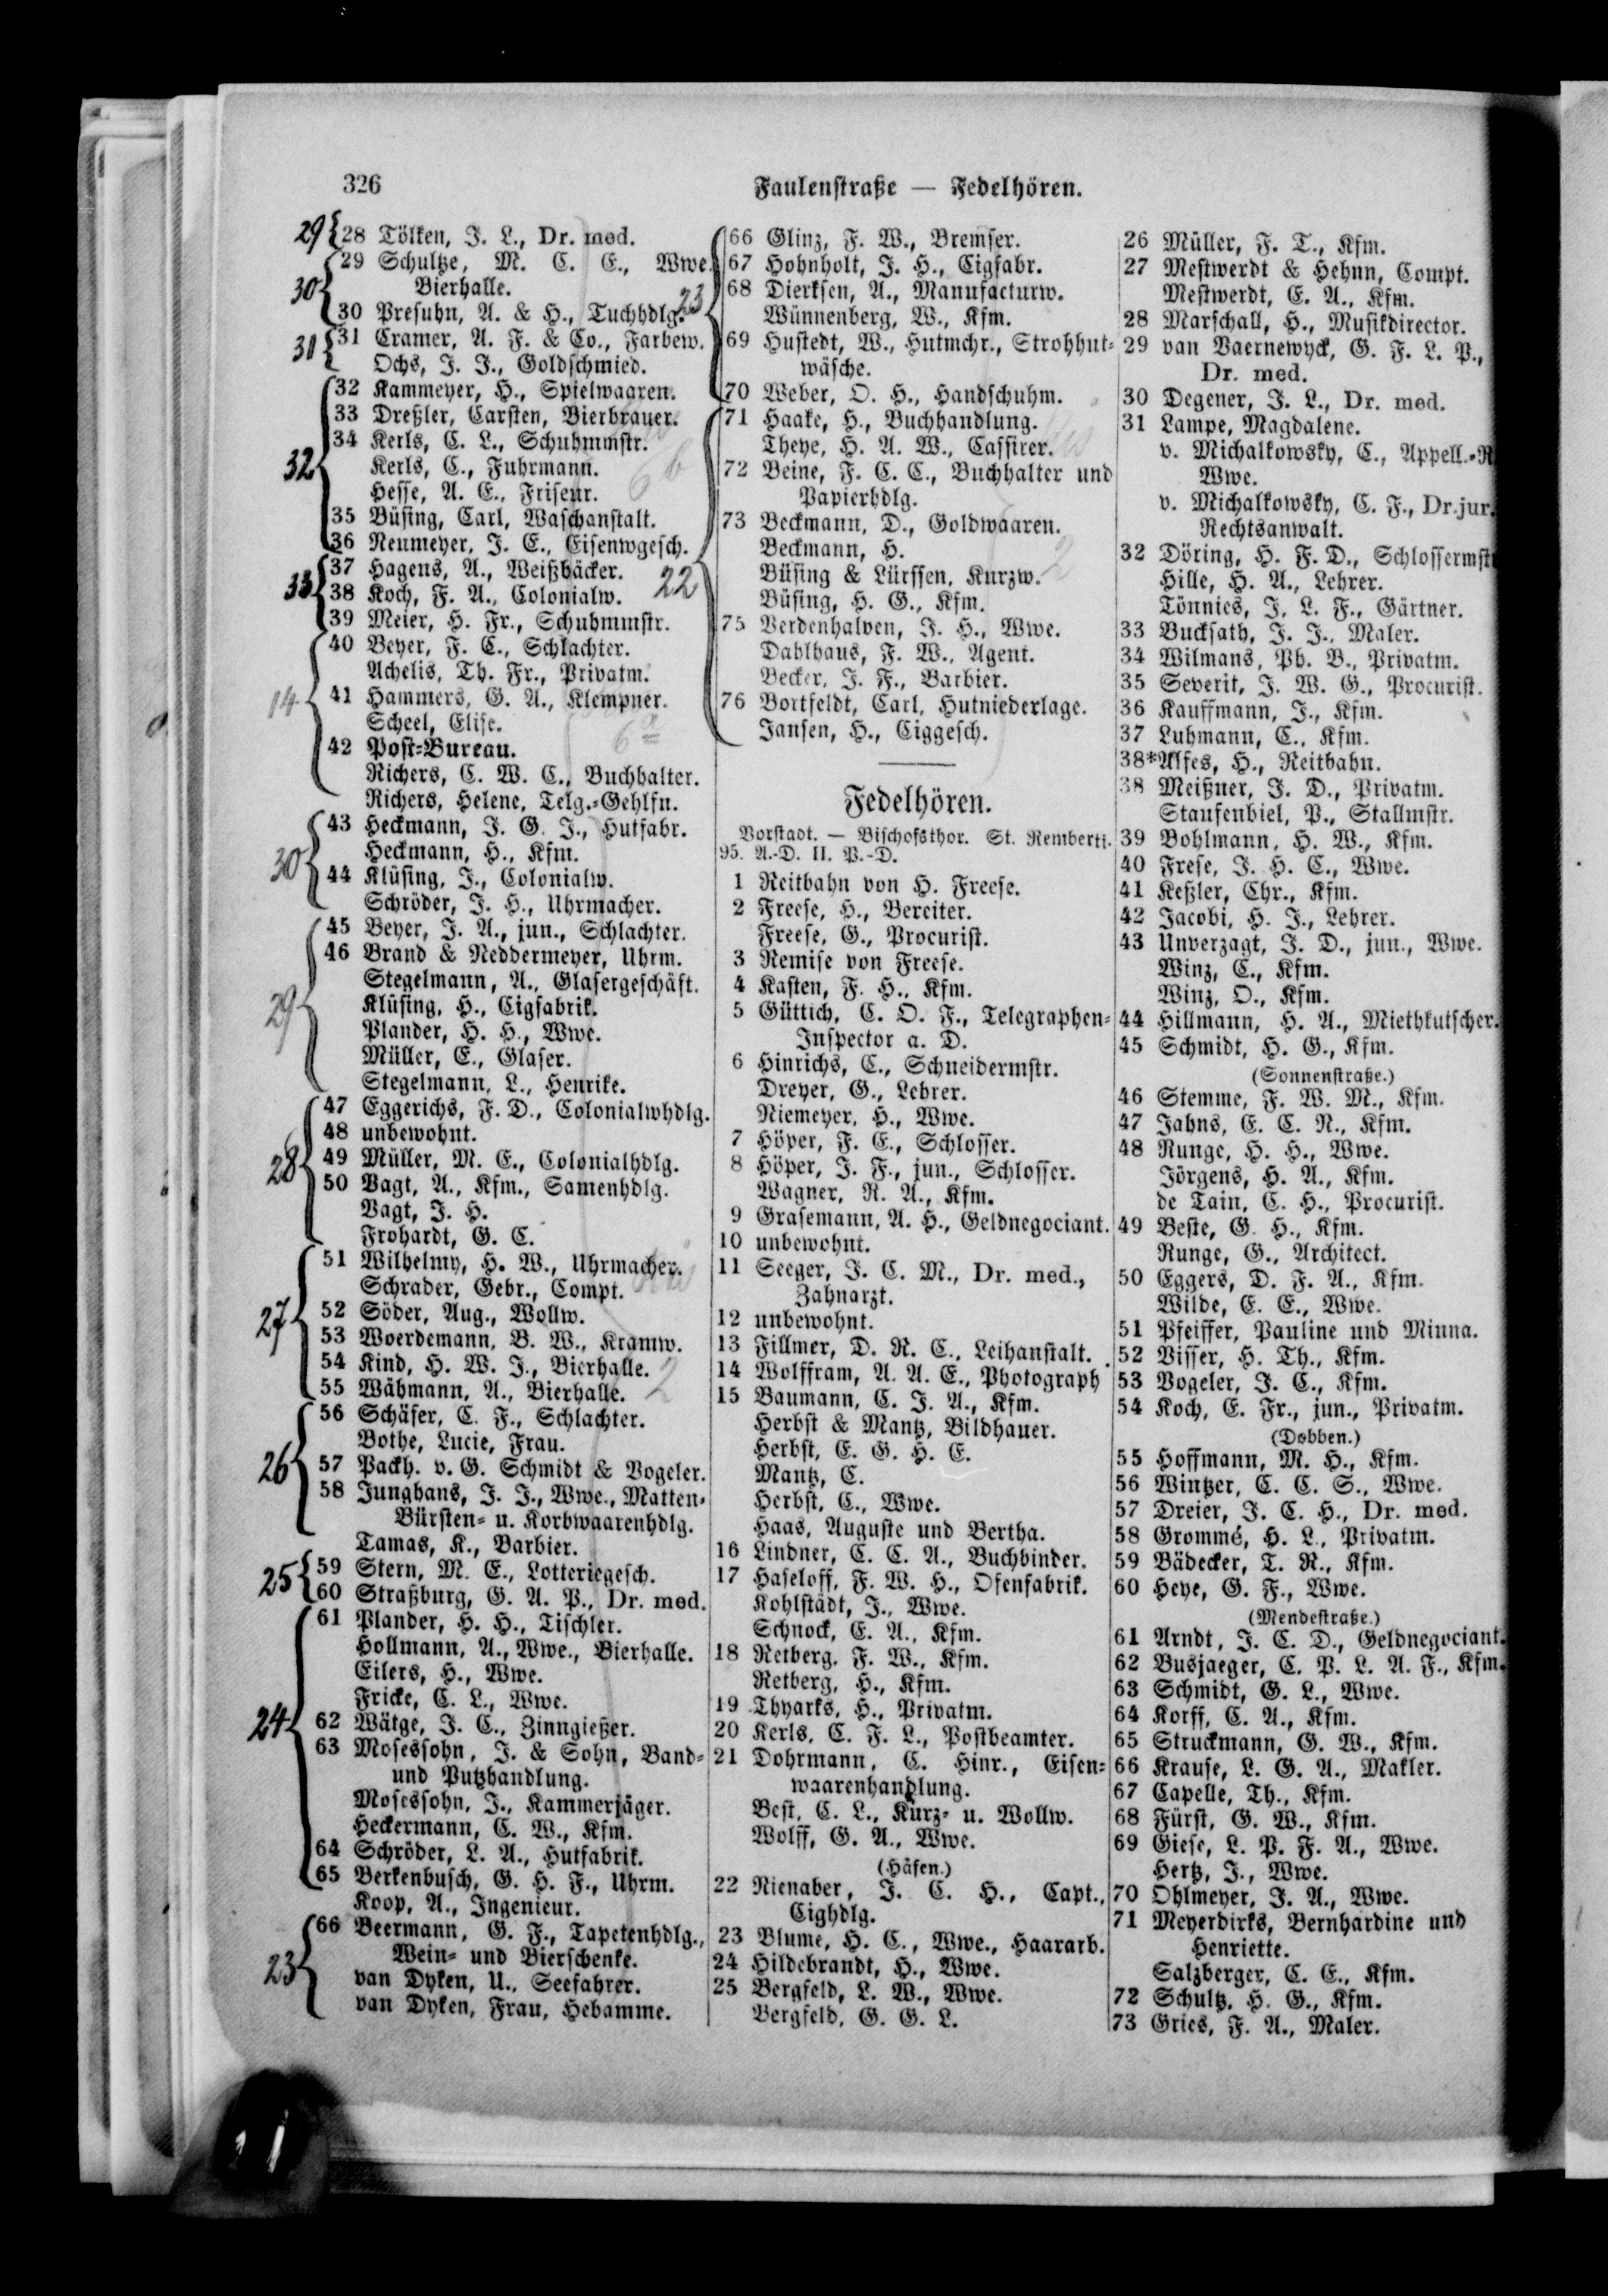 326
Faulenstraße — Fedelhören.
28 Tölken, J. L., Dr. med.
29 Schultze, M. C. E., Wwe.
Bierhalle.
30 Presuhn, A. & H., Tuchhdlg.
31 Cramer, A. F. & Co., Farbew.
Ochs, J. J., Goldschmied.
32 Kammeyer, H., Spielwaaren.
33 Dreßler, Carsten, Bierbrauer.
34 Kerls, C. L., Schuhmmstr.
Kerls, C., Fuhrmann.
Hesse, A. E., Friseur.
35 Büsing, Carl, Waschanstalt.
36 Neumeyer, J. E., Eisenwgesch.
37 Hagens, A., Weißbäcker.
38 Koch, F. A., Colonialw.
39 Meier, H. Fr., Schuhmmstr.
40 Beyer, F. C., Schlachter.
Achelis, Th. Fr., Privatm.
41 Hammers, G. A., Klempner.
Scheel, Elise.
42 Post-Bureau.
Richers, C. W. C., Buchhalter.
Richers, Helene, Telg.-Gehlfn.
43 Heckmann, J. G. J., Hutfabr.
Heckmann, H., Kfm.
44 Klüsing, J., Colonialw.
Schröder, J. H., Uhrmacher.
45 Beyer, J. A., jun., Schlachter.
46 Brand & Neddermeyer, Uhrm.
Stegelmann, A., Glasergeschäft.
Klüsing, H., Cigfabrik.
Plander, H. H., Wwe.
Müller, E., Glaser.
Stegelmann, L., Henrike.
47 Eggerichs, F. D., Colonialwhdlg.
48 unbewohnt.
49 Müller, M. E., Colonialhdlg.
50 Vagt, A., Kfm., Samenhdlg.
Vagt, J. H.
Frohardt, G. C.
51 Wilhelmy, H. W., Uhrmacher.
Schrader, Gebr., Compt.
52 Söder, Aug., Wollw.
53 Woerdemann, B. W., Kramw.
54 Kind, H. W. J., Bierhalle.
55 Wähmann, A., Bierhalle.
56 Schäfer, C. F., Schlachter.
Bothe, Lucie, Frau.
57 Packh. v. G. Schmidt & Vogeler.
58 Junghans, J. J., Wwe., Matten-
Bürsten- u. Korbwaarenhdlg.
Tamas, K., Barbier.
59 Stern, M. E., Lotteriegesch.
60 Straßburg, G. A. P., Dr. med.
61 Plander, H. H., Tischler.
Hollmann, A., Wwe., Bierhalle.
Eilers, H., Wwe.
Fricke, C. L., Wwe.
62 Wätge, J. C., Zinngießer.
63 Mosessohn, J. & Sohn, Band-
und Putzhandlung.
Mosessohn, J., Kammerjäger.
Heckermann, C. W., Kfm.
64 Schröder, L. A., Hutfabrik.
65 Berkenbusch, G. H. F., Uhrm.
Koop, A., Ingenieur.
66 Beermann, G. F., Tapetenhdlg.,
Wein- und Bierschenke.
van Dyken, U., Seefahrer.
van Dyken, Frau, Hebamme.
29
30
31
32
33
14
30
29
28
27
26
25
24
23
66 Glinz, F. W., Bremser.
67 Hohnholt, J. H., Cigfabr.
68 Dierksen, A., Manufacturw.
Wünnenberg, W., Kfm.
69 Hustedt, W., Hutmchr., Strohhut-
wäsche.
70 Weber, O. H., Handschuhm.
71 Haake, H., Buchhandlung.
Theye, H. A. W., Cassirer.
72 Beine, F. C. C., Buchhalter und
Papierhdlg.
73 Beckmann, D., Goldwaaren.
Beckmann, H.
Büsing & Lürssen, Kurzw.
Büsing, H. G., Kfm.
75 Verdenhalven, J. H., Wwe.
Dahlhaus, F. W., Agent.
Becker, J. F., Barbier.
76 Bortfeldt, Carl, Hutniederlage.
Jansen, H., Ciggesch.
23
22
Fedelhören.
Vorstadt. — Bischofsthor. St. Remberti.
95. A.-D. II. P.-D.
1 Reitbahn von H. Freese.
2 Freese, H., Bereiter.
Freese, G., Procurist.
3 Remise von Freese.
4 Kasten, F. H., Kfm.
5 Güttich, C. O. F., Telegraphen-
Inspector a. D.
6 Hinrichs, C., Schneidermstr.
Dreyer, G., Lehrer.
Niemeyer, H., Wwe.
7 Höper, F. E., Schlosser.
8 Höper, J. F., jun., Schlosser.
Wagner, R. A., Kfm.
9 Grasemann, A. H., Geldnegociant.
10 unbewohnt.
11 Seeger, J. C. M., Dr. med.,
Zahnarzt.
12 unbewohnt.
13 Fillmer, D. R. C., Leihanstalt.
14 Wolffram, A. A. E., Photograph
15 Baumann, C. J. A., Kfm.
Herbst & Mantz, Bildhauer.
Herbst, E. G. H. E.
Mantz, C.
Herbst, C., Wwe.
Haas, Auguste und Bertha.
16 Lindner, C. C. A., Buchbinder.
17 Haseloff, F. W. H., Ofenfabrik.
Kohlstädt, J., Wwe.
Schnock, E. A., Kfm.
18 Retberg, F. W., Kfm.
Retberg, H., Kfm.
19 Thyarks, H., Privatm.
20 Kerls, C. F. L., Postbeamter.
21 Dohrmann, C. Hinr., Eisen-
waarenhandlung.
Best, C. L., Kurz- u. Wollw.
Wolff, G. A., Wwe.
(Häfen.)
22 Nienaber, J. C. H., Capt.,
Cighdlg.
23 Blume, H. C., Wwe., Haararb.
24 Hildebrandt, H., Wwe.
25 Bergfeld, L. W., Wwe.
Bergfeld, G. G. L.
26 Müller, F. T., Kfm.
27 Mestwerdt & Hehnn, Compt.
Mestwerdt, E. A., Kfm.
28 Marschall, H., Musikdirector.
29 van Vaernewyck, G. F. L. P.,
Dr. med.
30 Degener, J. L., Dr. med.
31 Lampe, Magdalene.
v. Michalkowsky, C., Appell.-R
Wwe.
v. Michalkowsky, C. F., Dr. jur.
Rechtsanwalt.
32 Döring, H. F. D., Schlossermst
Hille, H. A., Lehrer.
Tönnies, J. L. F., Gärtner.
33 Bucksath, J. J., Maler.
34 Wilmans, Ph. B., Privatm.
35 Severit, J. W. G., Procurist.
36 Kauffmann, J., Kfm.
37 Luhmann, C., Kfm.
38* Alfes, H., Reitbahn.
38 Meißner, J. D., Privatm.
Staufenbiel, P., Stallmstr.
39 Bohlmann, H. W., Kfm.
40 Frese, J. H. C., Wwe.
41 Keßler, Chr., Kfm.
42 Jacobi, H. J., Lehrer.
43 Unverzagt, J. D., jun., Wwe.
Winz, C., Kfm.
Winz, O., Kfm.
44 Hillmann, H. A., Miethkutscher.
45 Schmidt, H. G., Kfm.
(Sonnenstraße.)
46 Stemme, F. W. M., Kfm.
47 Jahns, E. C. N., Kfm.
48 Runge, H. H., Wwe.
Jörgens, H. A., Kfm.
de Tain, C. H., Procurist.
49 Beste, G. H., Kfm.
Runge, G., Architect.
50 Eggers, D. F. A., Kfm.
Wilde, E. E., Wwe.
51 Pfeiffer, Pauline und Minna.
52 Visser, H. Th., Kfm.
53 Vogeler, J. C., Kfm.
54 Koch, E. Fr., jun., Privatm.
(Dobben.)
55 Hoffmann, M. H., Kfm.
56 Wintzer, C. C. S., Wwe.
57 Dreier, J. C. H., Dr. med.
58 Grommé, H. L., Privatm.
59 Bädecker, T. R., Kfm.
60 Heye, G. F., Wwe.
(Mendestraße.)
61 Arndt, J. C. D., Geldnegociant.
62 Busjaeger, C. P. L. A. F., Kfm.
63 Schmidt, G. L., Wwe.
64 Korff, C. A., Kfm.
65 Struckmann, G. W., Kfm.
66 Krause, L. G. A., Makler.
67 Capelle, Th., Kfm.
68 Fürst, G. W., Kfm.
69 Giese, L. P. F. A., Wwe.
Hertz, J., Wwe.
70 Ohlmeyer, J. A., Wwe.
71 Meyerdirks, Bernhardine und
Henriette.
Salzberger, C. E., Kfm.
72 Schultz, H. G., Kfm.
73 Gries, F. A., Maler.